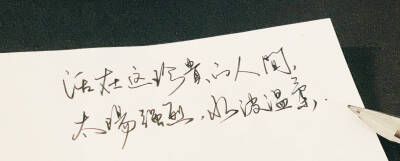 活在这珍貴的人间，
太陽强烈，水波温柔，.